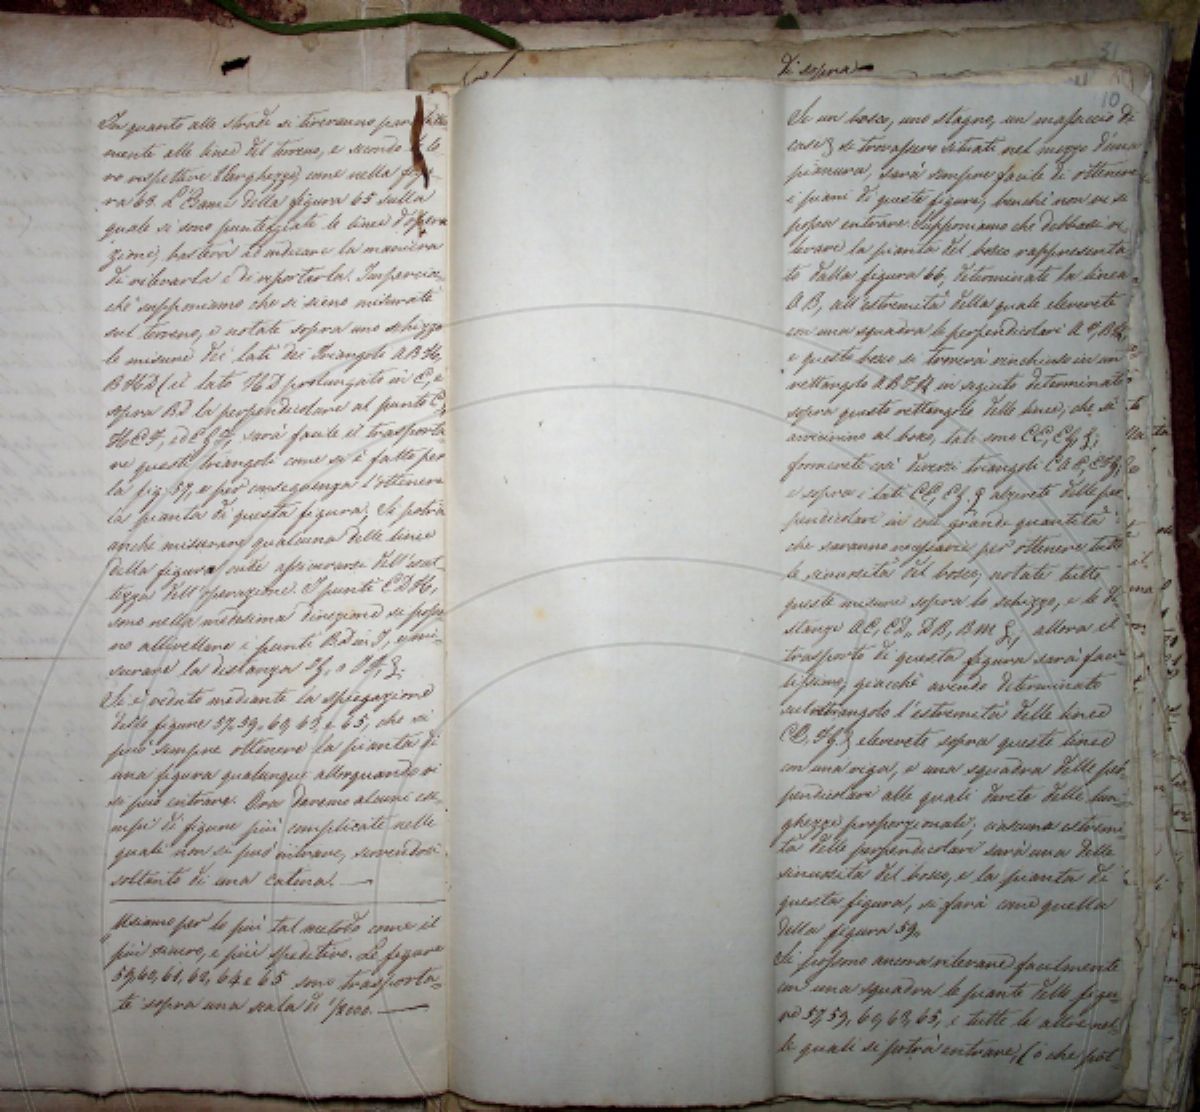 In quanto alle strade si tireranno parallella-
mente alle linee del terreno, e secondo le lo-
ro rispettive larghezze, come nella figu-
ra 63. L'Esame della figura 65 sulla
quale si sono punteggiate le linee d'opera
zione, basterà ad indicare la maniera
di rilevarla e di riportarla. Imperciò
che supponiamo che si sieno misurati
sul terreno, e notate sopra uno schizzo
le misure dei lati dei Triangoli A B H,
B H D (il lato H D prolungato in C, e
sopra B D la perpendicolare al punto C
sarà facile il trasporta-
re questi triangoli come si è fatto per
la fig. 57, e per conseguenza l'ottenere
la pianta di questa figura. Si potrà
anche misurare qualcuna delle linee
della figura onde assicurarsi dell'esat-
tezza dell'operazione. I punti C D H,
sono nella medesima direzione se posso
no allivellare i punti B D in I, e mi-
surare la distanza
Si è veduto mediante la spiegazione
delle figure 57, 59, 60, 63, e 65, che si
può sempre ottenere la pianta di
una figura qualunque allorquando vi
si può entrare. Ora daremo alcuni ese-
mpi di figure più complicate nelle
quali non si può entrare, servendosi
soltanto di una catena.
Usiamo per lo più tal metodo come il
più sicuro, e più speditivo. Le figure
59, 60, 61, 60, 64 e 65 sono trasporta-
te sopra una scala di 1/2000.
di sopra
31
10
Se un bosco, uno stagno, un massiccio di
case & si trovassero situati nel mezzo d'una
pianura, sarà sempre facile di ottenere
i piani di queste figure, benchè non vi si
possa entrare. Supponiamo che debbasi ri-
levare la pianta del bosco rappresenta
to dalla figura 66, determinate la linea
A B, all'estremità della quale eleverete
con una squadra le perpendicolari A F, B H,
e questo bosco si troverà rinchiuso in un
rettangolo A B F H in seguito determinate
sopra questo rettangolo delle linee, che si
avvicinino al bosco, tali sono
formerete così diversi triangoli
e sopra i lati alzerete delle per
pendicolari in così grande quantità
che saranno necessarie per ottenere tutte
le sinuosità del bosco, notate tutte
queste misure sopra lo schizzo, e le di
stanze A C, C D, D B, B M &, allora il
trasporto di questa figura sarà faci
lissimo, giacchè avendo determinato
sul rettangolo l'estremità delle linee
eleverete sopra queste linee
con una riga, e una squadra delle per-
pendicolari alle quali darete delle lun-
ghezze proporzionali; ciascuna estremi-
tà delle perpendicolari sarà una delle
sinuosità del bosco, e la pianta di
questa figura, si farà come quella
della figura 59.
Si possono ancora rilevare facilmente
con una squadra le piante delle figu-
re 57, 59, 60, 63, 65, e tutte le altre nel-
le quali si potrà entrare, (o che pot-